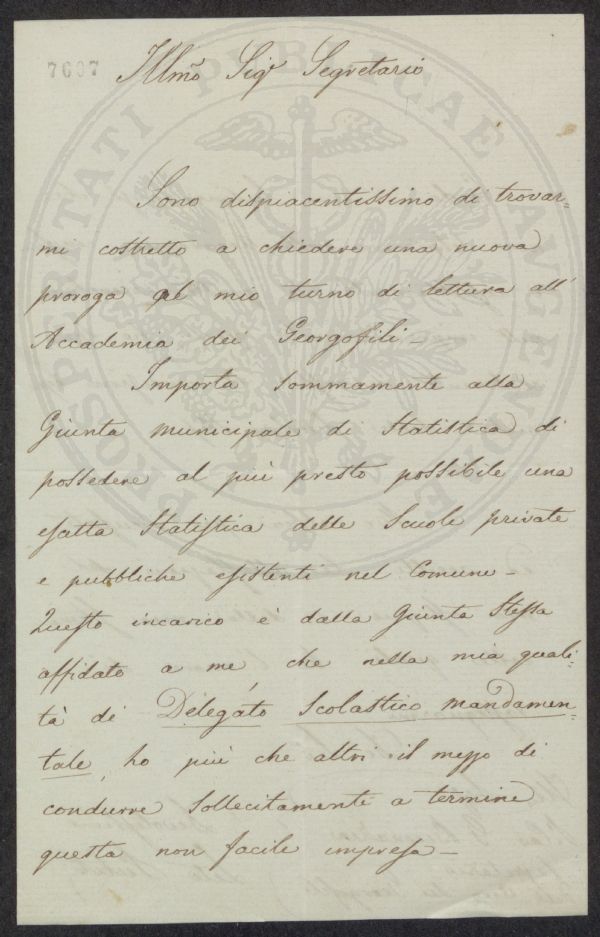 7607
Illmo Sigr Segretario
Sono dispiacentissimo di trovar=
mi costretto a chiedere una nuova
proroga al mio turno di lettura all'
Accademia dei Georgofili_
Importa sommamente alla
Giunta municipale di Statistica di
possedere al più presto possibile una
esatta Statistica delle Scuole private
e pubbliche esistenti nel Comune_
Questo incarico è dalla Giunta Stessa
affidato a me, che nella mia quali=
tà di Delegato Scolastico mandamen=
tale, ho più che altri il mezzo di
condurre Sollecitamente a termine
questa non facile impresa_
PROSPERITATI PUBLICAE AUGENDAE